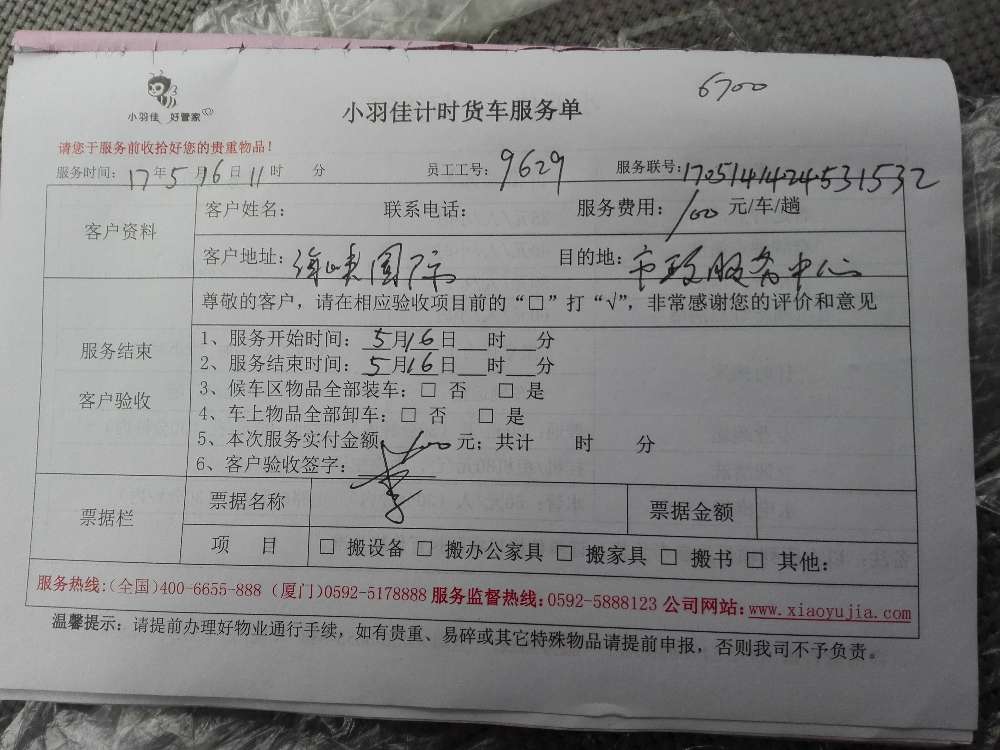 6700
小羽佳 好管家
小羽佳计时货车服务单
请您于服务前收拾好您的贵重物品!
服务时间: 17年5月16日11时 分 员工工号: 9629 服务联号:
客户资料
客户姓名: 联系电话: 服务费用: 100元/车/趟
客户地址: 国际 目的地: 市政服务中心
服务结束
客户验收
尊敬的客户,请在相应验收项目前的“□”打“√”,非常感谢您的评价和意见
1、服务开始时间: 5月16日___时___分
2、服务结束时间: 5月16日___时___分
3、候车区物品全部装车: □ 否 □ 是
4、车上物品全部卸车: □ 否 □ 是
5、本次服务实付金额 100元; 共计 时 分
6、客户验收签字:
票据栏
票据名称 票据金额
项 目 □ 搬设备 □ 搬办公家具 □ 搬家具 □ 搬书 □ 其他:
服务热线:(全国)400-6655-888 (厦门)0592-5178888 服务监督热线:0592-5888123 公司网站:www.xiaoyujia.com
温馨提示: 请提前办理好物业通行手续,如有贵重、易碎或其它特殊物品请提前申报,否则我司不予负责。